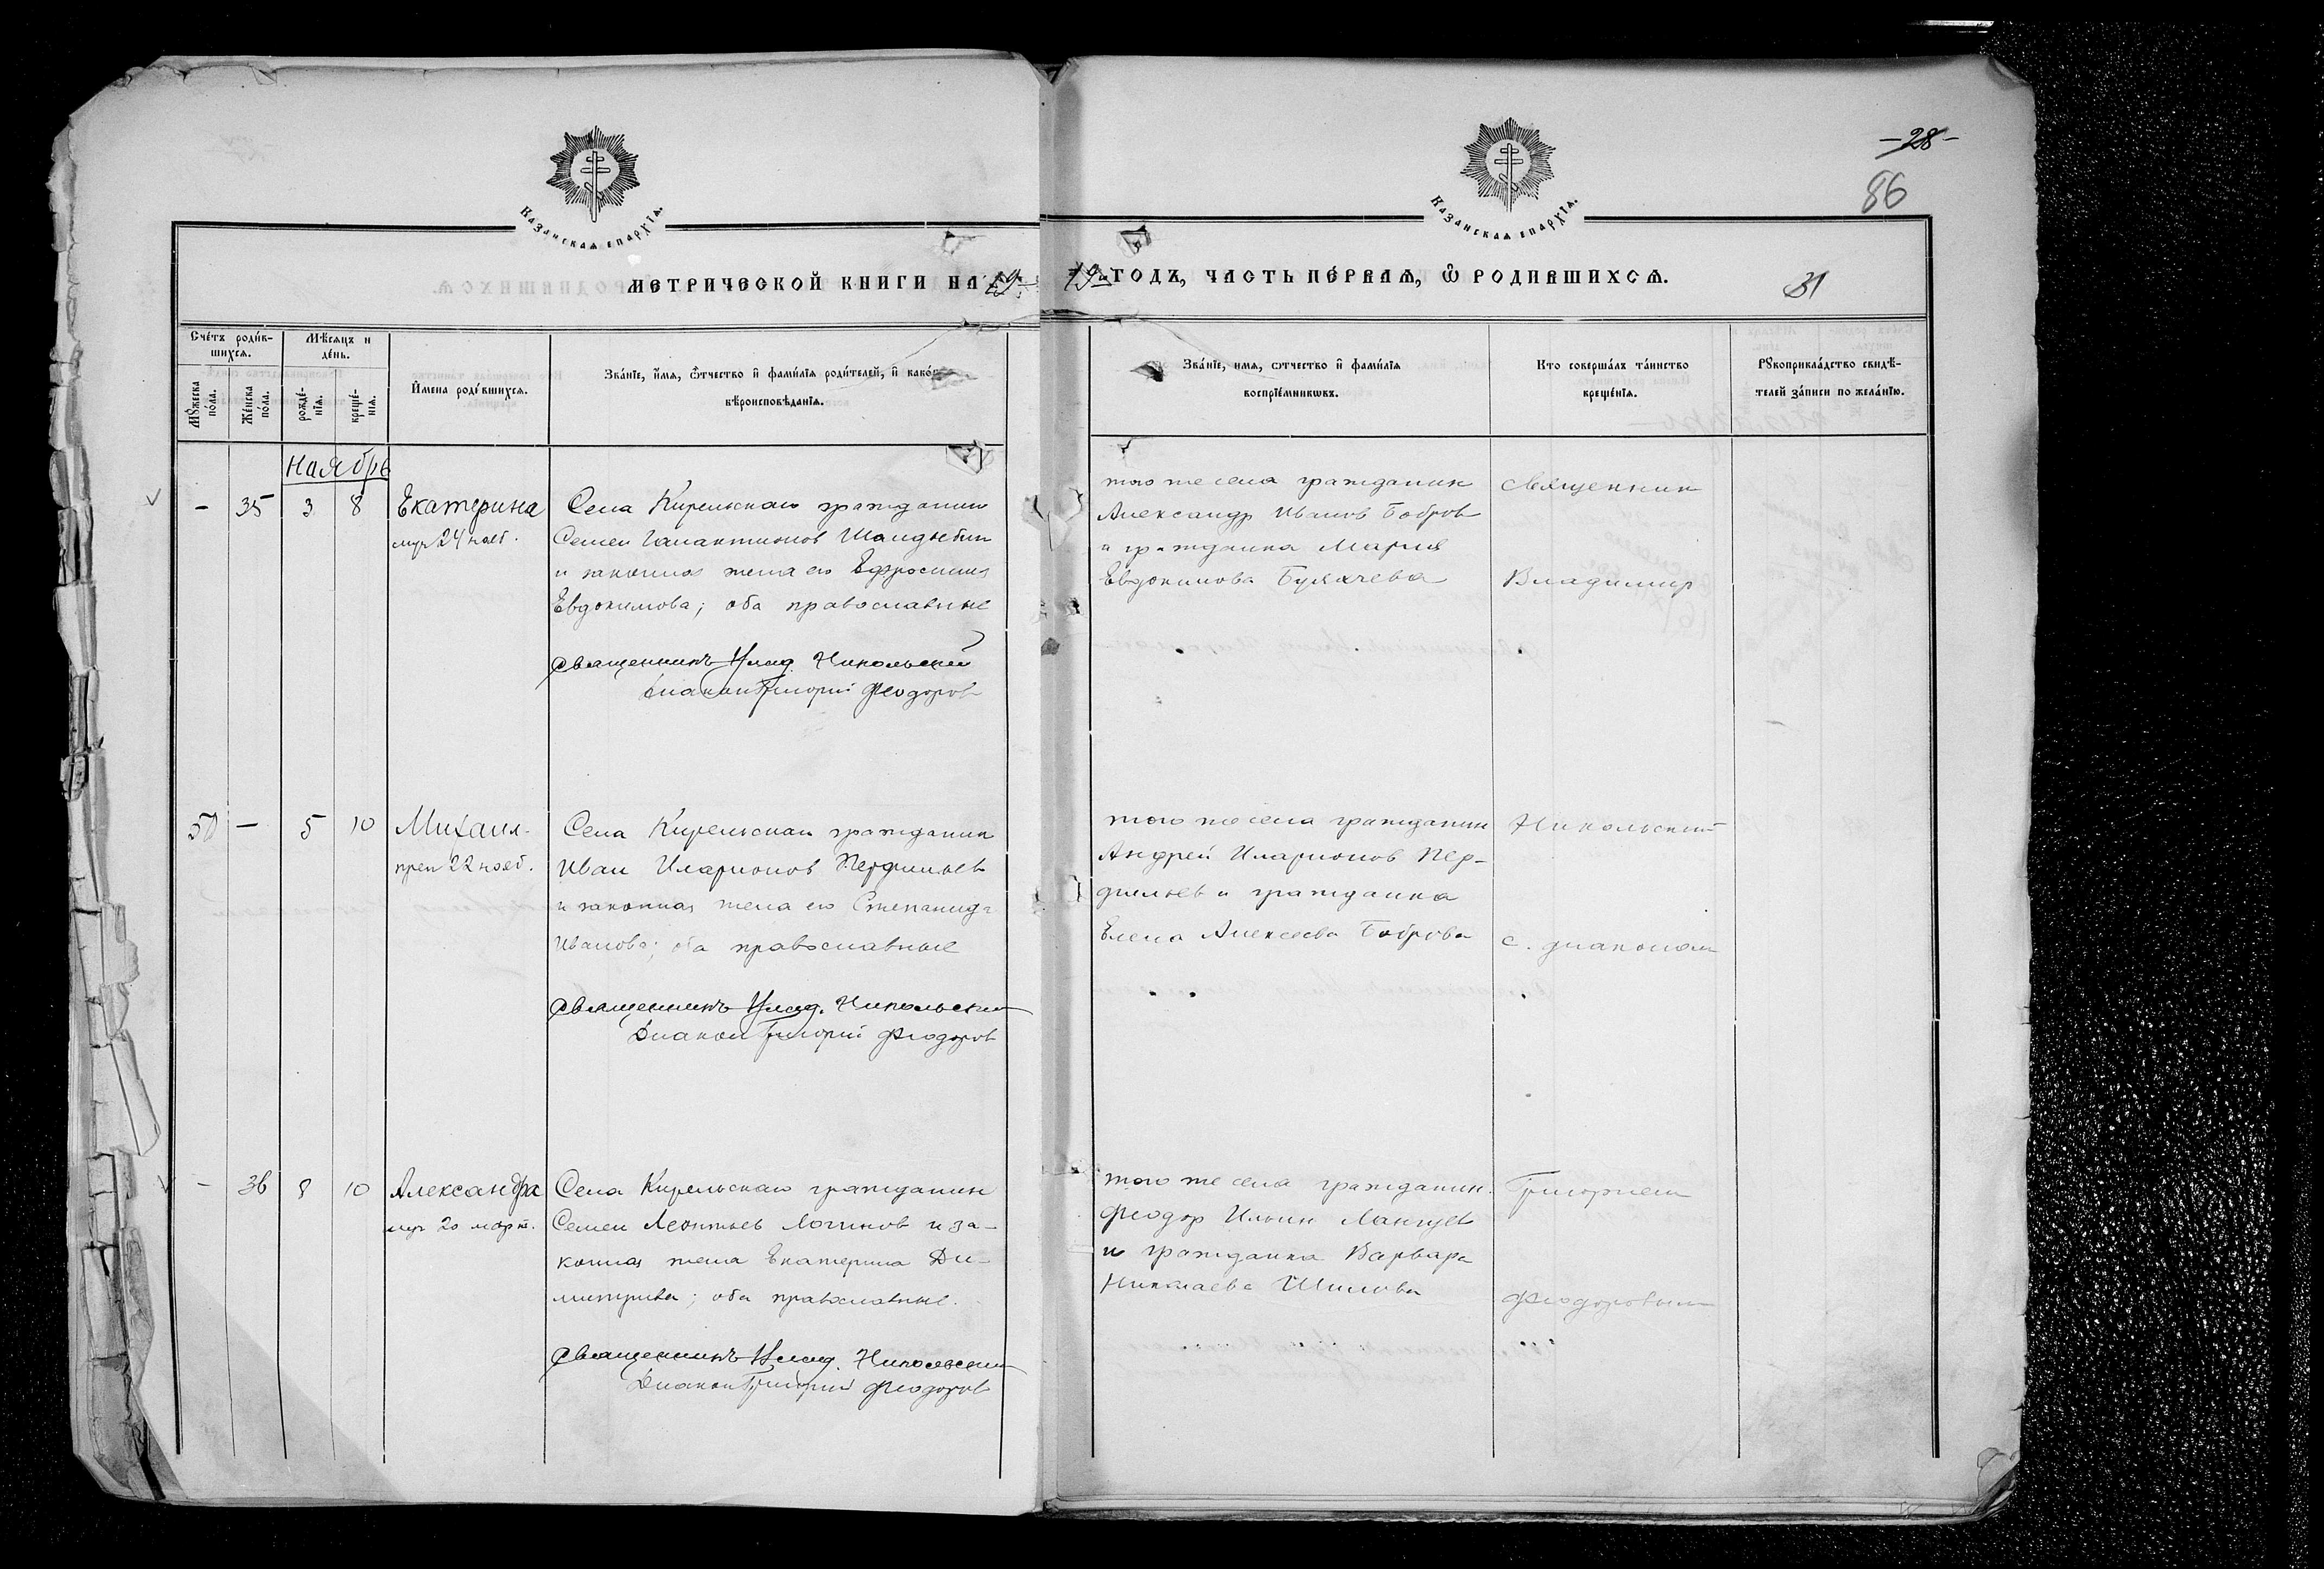 Казанская епархїѧ.
Казанская епархїѧ.
-28-
86
МЕТРИЧЕСКОЙ КНИГИ НА 19
19 ГОДЪ, ЧАСТЬ ПЕ́РВАѦ, Ѡ҆ РОДИВШИХСѦ.
31
Счéтъ роди́вшихсѧ.
Мѣ́сѧцъ и де́нь.
Мꙋ́жеска по́ла.
Же́нска по́ла.
рожде́нїѧ.
креще́нїѧ.
И҆мена роди́вшихсѧ.
Зва́нїе, и҆́мѧ, ѻ҆́тчество и҆ фами́лїѧ роди́телей, и҆ како́
вѣроисповѣ́данїѧ.
Зва́нїе, имѧ, ѻтчество и҆ фами́лїѧ
воспрїе́мникѡвъ.
Кто соверша́лъ та́инство
креще́нїѧ.
Рꙋкоприкла́дство свидѣ́-
телей за́писи по жела́нїю.
Наябрь
- 35 3 8 Екатерина
муч 24 нояб.
Села Кирельскаго гражданин
Семен Галактионов
и законная жена его Ефросиния
Евдокимова; оба православные
Священникъ Влад. Никольский
Диакон Григорий Феодоров
того же села гражданин
Александр Иванов Бобров
и гражданка Мария
Евдокимова
Священник
Владимир
50 - 5 10 Михаил
прав 22 нояб.
Села Кирельскаго гражданин
Иван Иларионов Перфильев
и законная жена его Степанида
Иванова; оба православные
Священникъ Влад. Никольский
Диакон Григорий Феодоров
того же села гражданин
Андрей Иларионов Пер-
фильев и гражданка
Елена Алексеева Боброва
Никольский
с. диаконом
- 36 8 10 Александра
муч 20 март.
Села Кирельскаго гражданин
Семен Леонтьев Логинов и за-
конная жена Екатерина Ди-
митриева; оба православные.
Священникъ Влад. Никольский
Диакон Григорий Феодоров
того же села гражданин
Феодор Ильин
и гражданка Варвара
Николаева Шилова
Григорием
Феодоровым